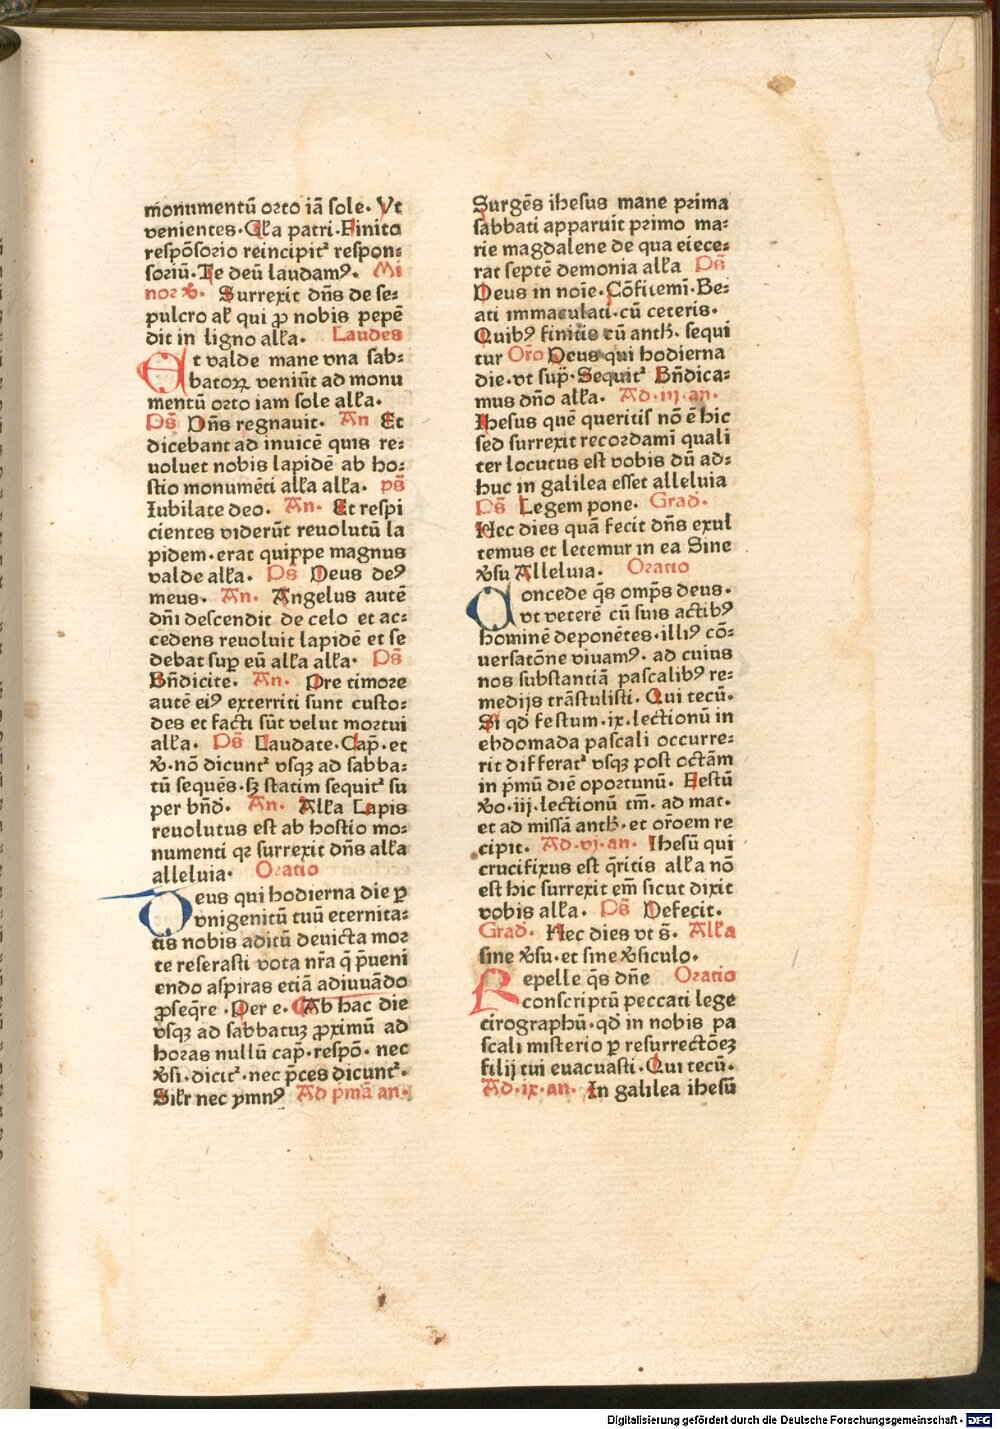 monumentū orto iā sole. Vt
venientes. Gl̄a patri. Finito
respōsorio reincipit᷑ respon⸗
soriū. Te deū laudamꝰ. Mi
nor ꝟ. Surrexit dn̄s de se⸗
pulcro al̄r qui ꝓ nobis pepē
dit in ligno all̄a. Laudes
Et valde mane vna sab⸗
batoꝝ veniūt ad monu
mentū orto iam sole all̄a.
Ps̄ Dn̄s regnauit. An Et
dicebant ad inuicē quis re⸗
uoluet nobis lapidē ab ho⸗
stio monumēti all̄a all̄a. ps̄
Iubilate deo. An. Et respi
cientes viderūt reuolutū la
pidem. erat quippe magnus
valde all̄a. Ps̄ Deus deꝰ
meus. An. Angelus autē
dn̄i descendit de celo et ac⸗
cedens reuoluit lapidē et se
debat sup̄ eū all̄a all̄a. Ps̄
Bn̄dicite. An. Pre timore
autē eiꝰ exterriti sunt custo⸗
des et facti sūt velut mortui
all̄a. Ps̄ Laudate. Cap̄. et
ꝟ. nō dicunt᷑ vsqꝫ ad sabba⸗
tū sequēs. sꝫ statim sequit᷑ su
per bn̄d. An. All̄a Lapis
reuolutus est ab hostio mo⸗
numenti qꝛ surrexit dn̄s all̄a
alleluia. Oratio
Deus qui hodierna die ꝑ
vnigenitū tuū eternita⸗
tis nobis aditū deuicta mor
te reserasti vota nr̄a q̄ p̄ueni
endo aspiras etiā adiuuādo
ꝓseq̄re. Per e. Ab hac die
vsqꝫ ad sabbatuꝫ ꝓximū ad
horas nullū cap̄. respō. nec
ꝟsi. dicit᷑. nec p̄ces dicunt᷑.
Sil̄r nec ymnꝰ Ad p̄mā an.
Surgēs ihesus mane prima
sabbati apparuit primo ma⸗
rie magdalene de qua eiece⸗
rat septē demonia all̄a Ps̄
Deus in noīe. Cōfitemī. Be⸗
ati immaculati. cū ceteris.
Quibꝰ finitis cū anth̄. sequi
tur Or̄o Deus qui hodierna
die. vt sup̄. Sequit᷑ Bn̄dica⸗
mus dn̄o all̄a. Ad. iij. an.
Ihesus quē queritis nō ē hic
sed surrexit recordami quali
ter locutus est vobis dū ad⸗
huc in galilea esset alleluia
Ps̄ Legem pone. Grad̄.
Hec dies quā fecit dn̄s exul
temus et letemur in ea Sine
ꝟsu Alleluia. Oratio
Concede q̄s omp̄s deus.
vt veterē cū suis actibꝰ
hominē deponētes. illiꝰ cō⸗
uersatōne viuamꝰ. ad cuius
nos substantiā pascalibꝰ re⸗
medijs trāstulisti. Qui tecū.
Si qd̄ festum. ix. lectionū in
ebdomada pascali occurre⸗
rit differat᷑ vsqꝫ post octām
in p̄mū diē oportunū. Festū
ꝟo. iij. lectionū tm̄. ad mat.
et ad missā anth̄. et or̄oem re
cipit. Ad. vj. an. Ihesū qui
crucifixus est q̄ritis all̄a nō
est hic surrexit em̄ sicut dixit
vobis all̄a. Ps̄ Defecit.
Grad̄. Hec dies vt s̄. All̄a
sine ꝟsu. et sine ꝟsiculo.
Repelle q̄s dn̄e Oratio
conscriptū peccati lege
cirographū. qd̄ in nobis pa
scali misterio ꝑ resurrectōeꝫ
filij tui euacuasti. Qui tecū.
Ad. ix. an. In galilea ihesū
Digitalisierung gefördert durch die Deutsche Forschungsgemeinschaft - DFG